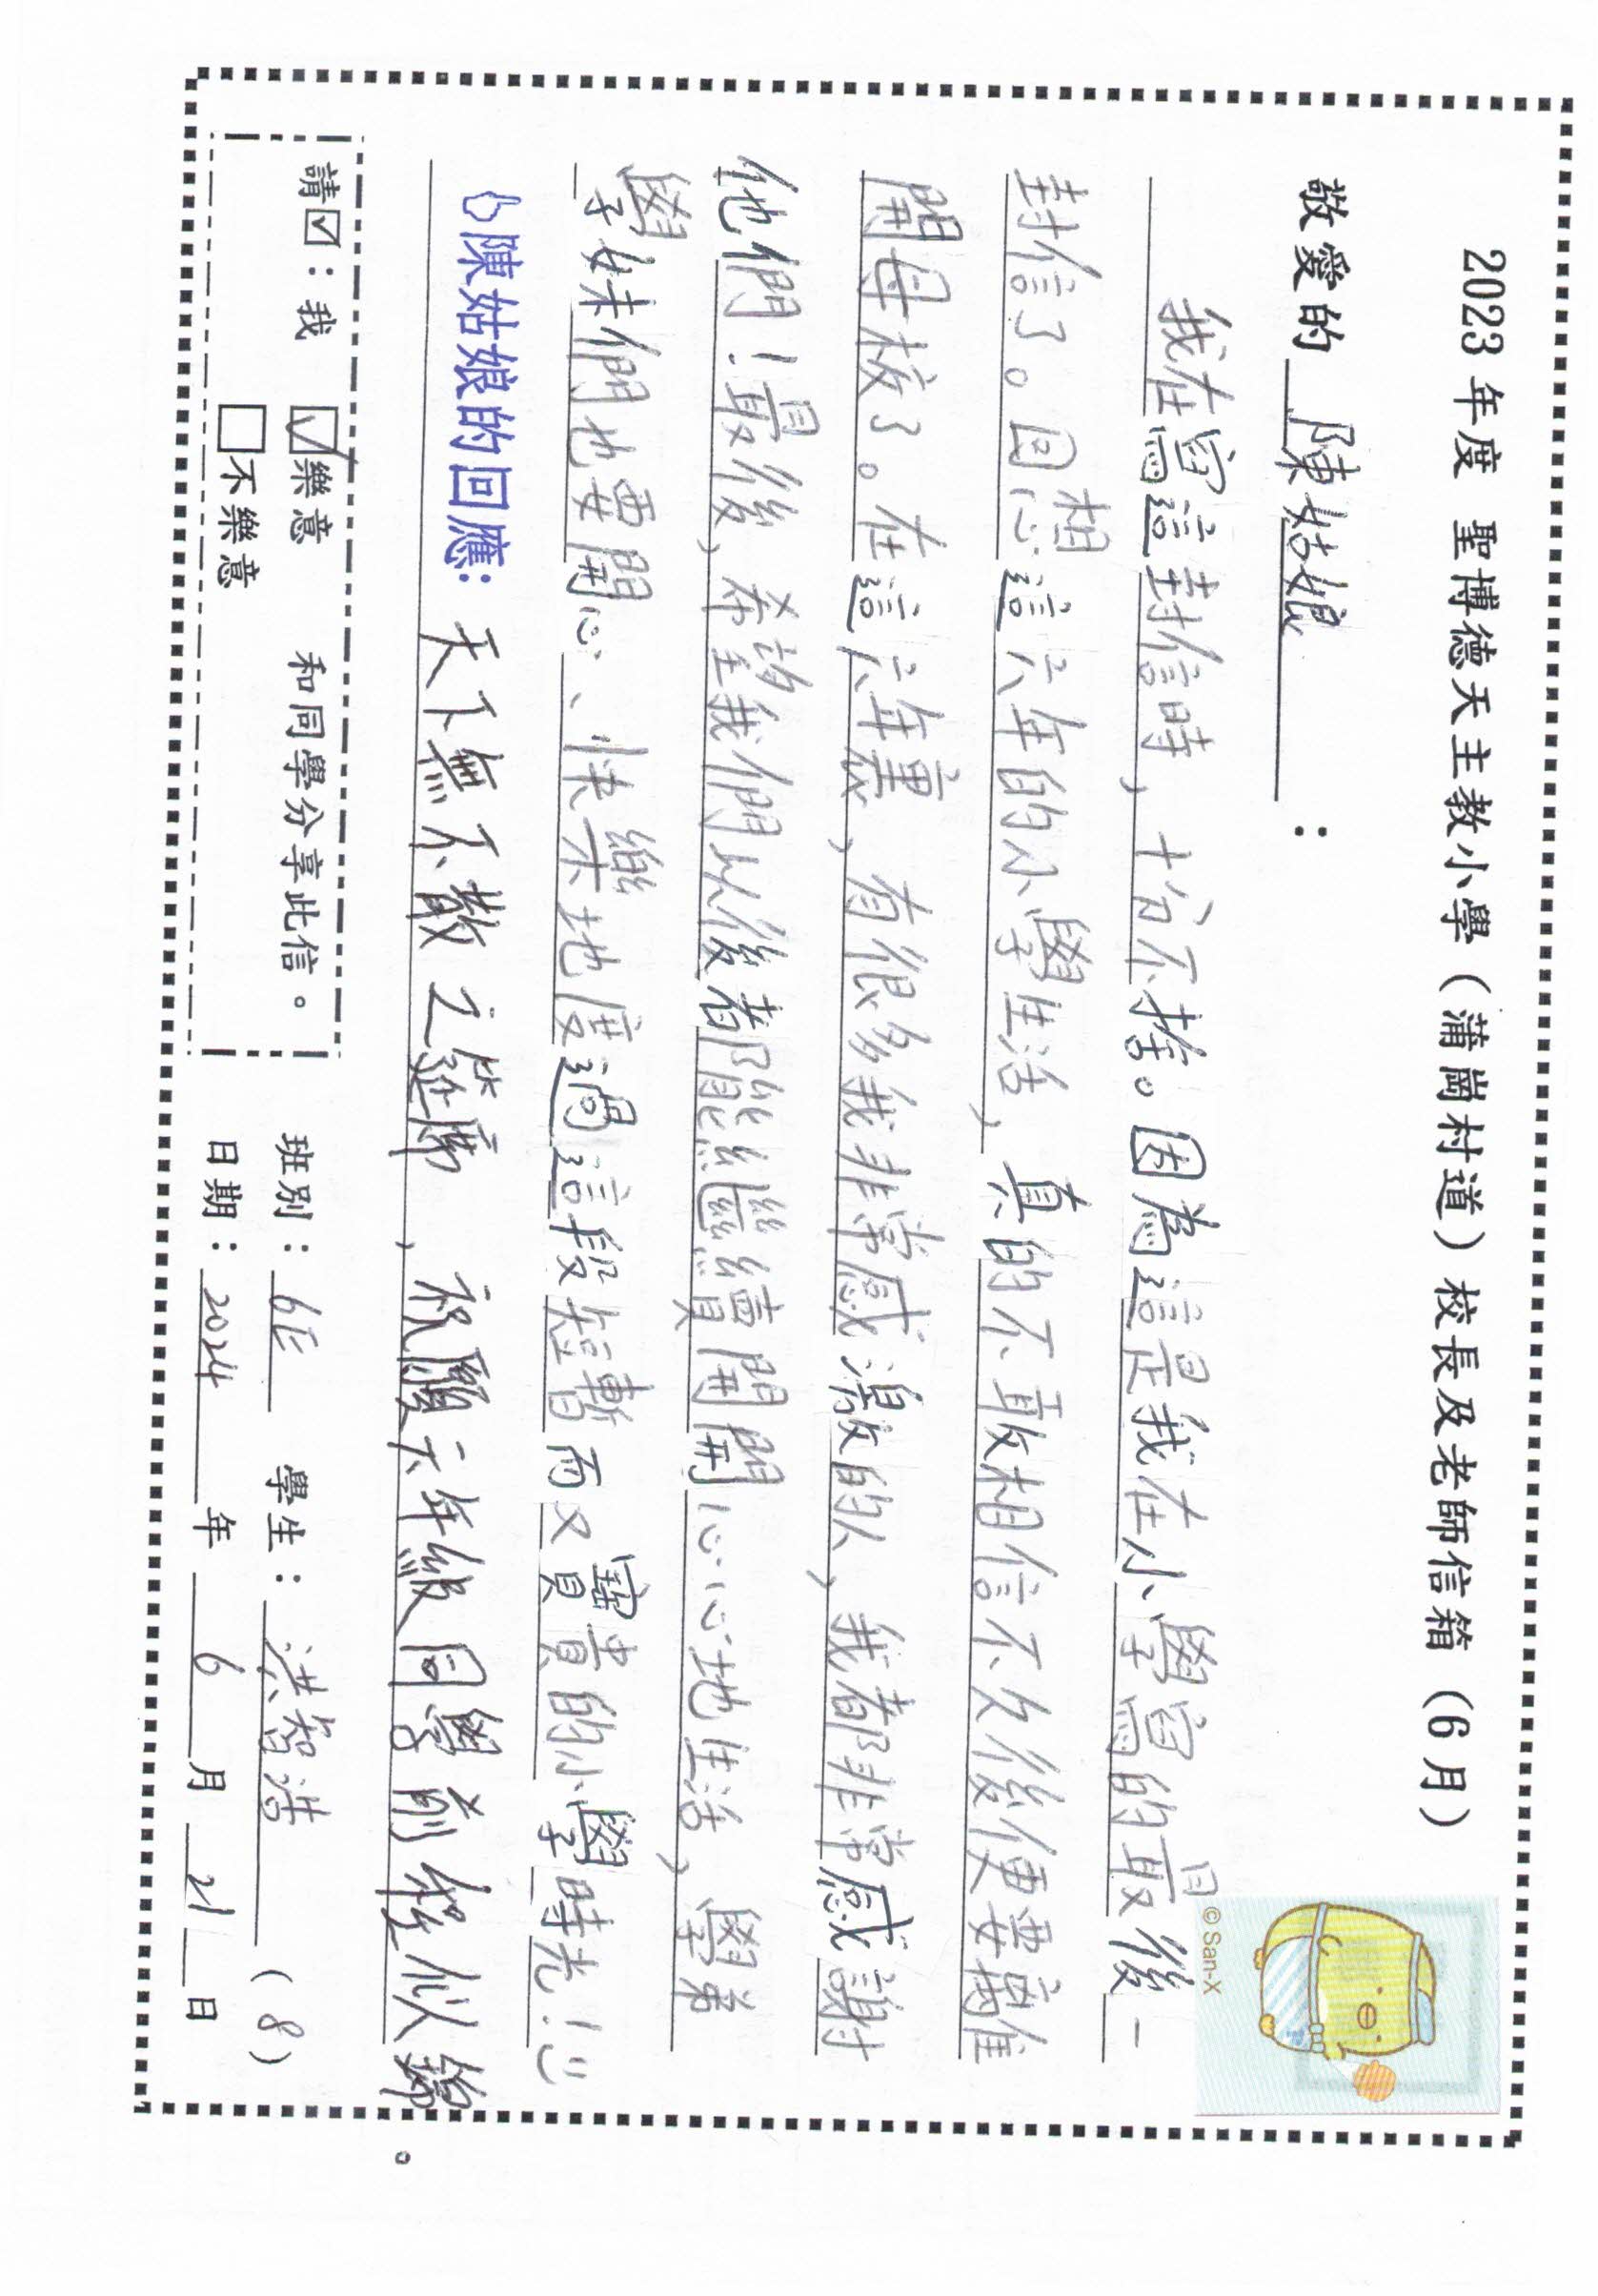 2023 年度 聖博德天主教小學（蒲崗村道）校長及老師信箱（6月）
敬愛的 陳姑娘 ：
我在寫這封信時，十分不捨。因為這是我在小學寫的最後一
封信了。回想這六年的小學生活，真的不敢相信不久後便要離
開母校了。在這六年裏，有很多我非常感激的人，我都非常感謝
他們！最後，希望我們以後都能繼續開開心心地生活，學弟
學妹們也要開心、快樂地度過這段短暫而又寶貴的小學時光！
陳姑娘的回應：天下無不散之筵席，祝願六年級同學前程似錦。
請☑：我 ☑樂意 和同學分享此信。
□不樂意
班別：6E 學生：洪智濤 （8）
日期：2024 年 6 月 21 日
© San-X